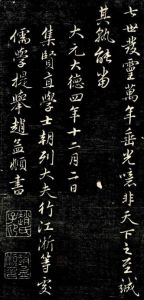 七世發靈萬年垂光噫非天下之至誠
其孰能當
大元大德四年十二月二日
集賢直學士朝列大夫行江浙等處
儒學提舉趙孟頫書